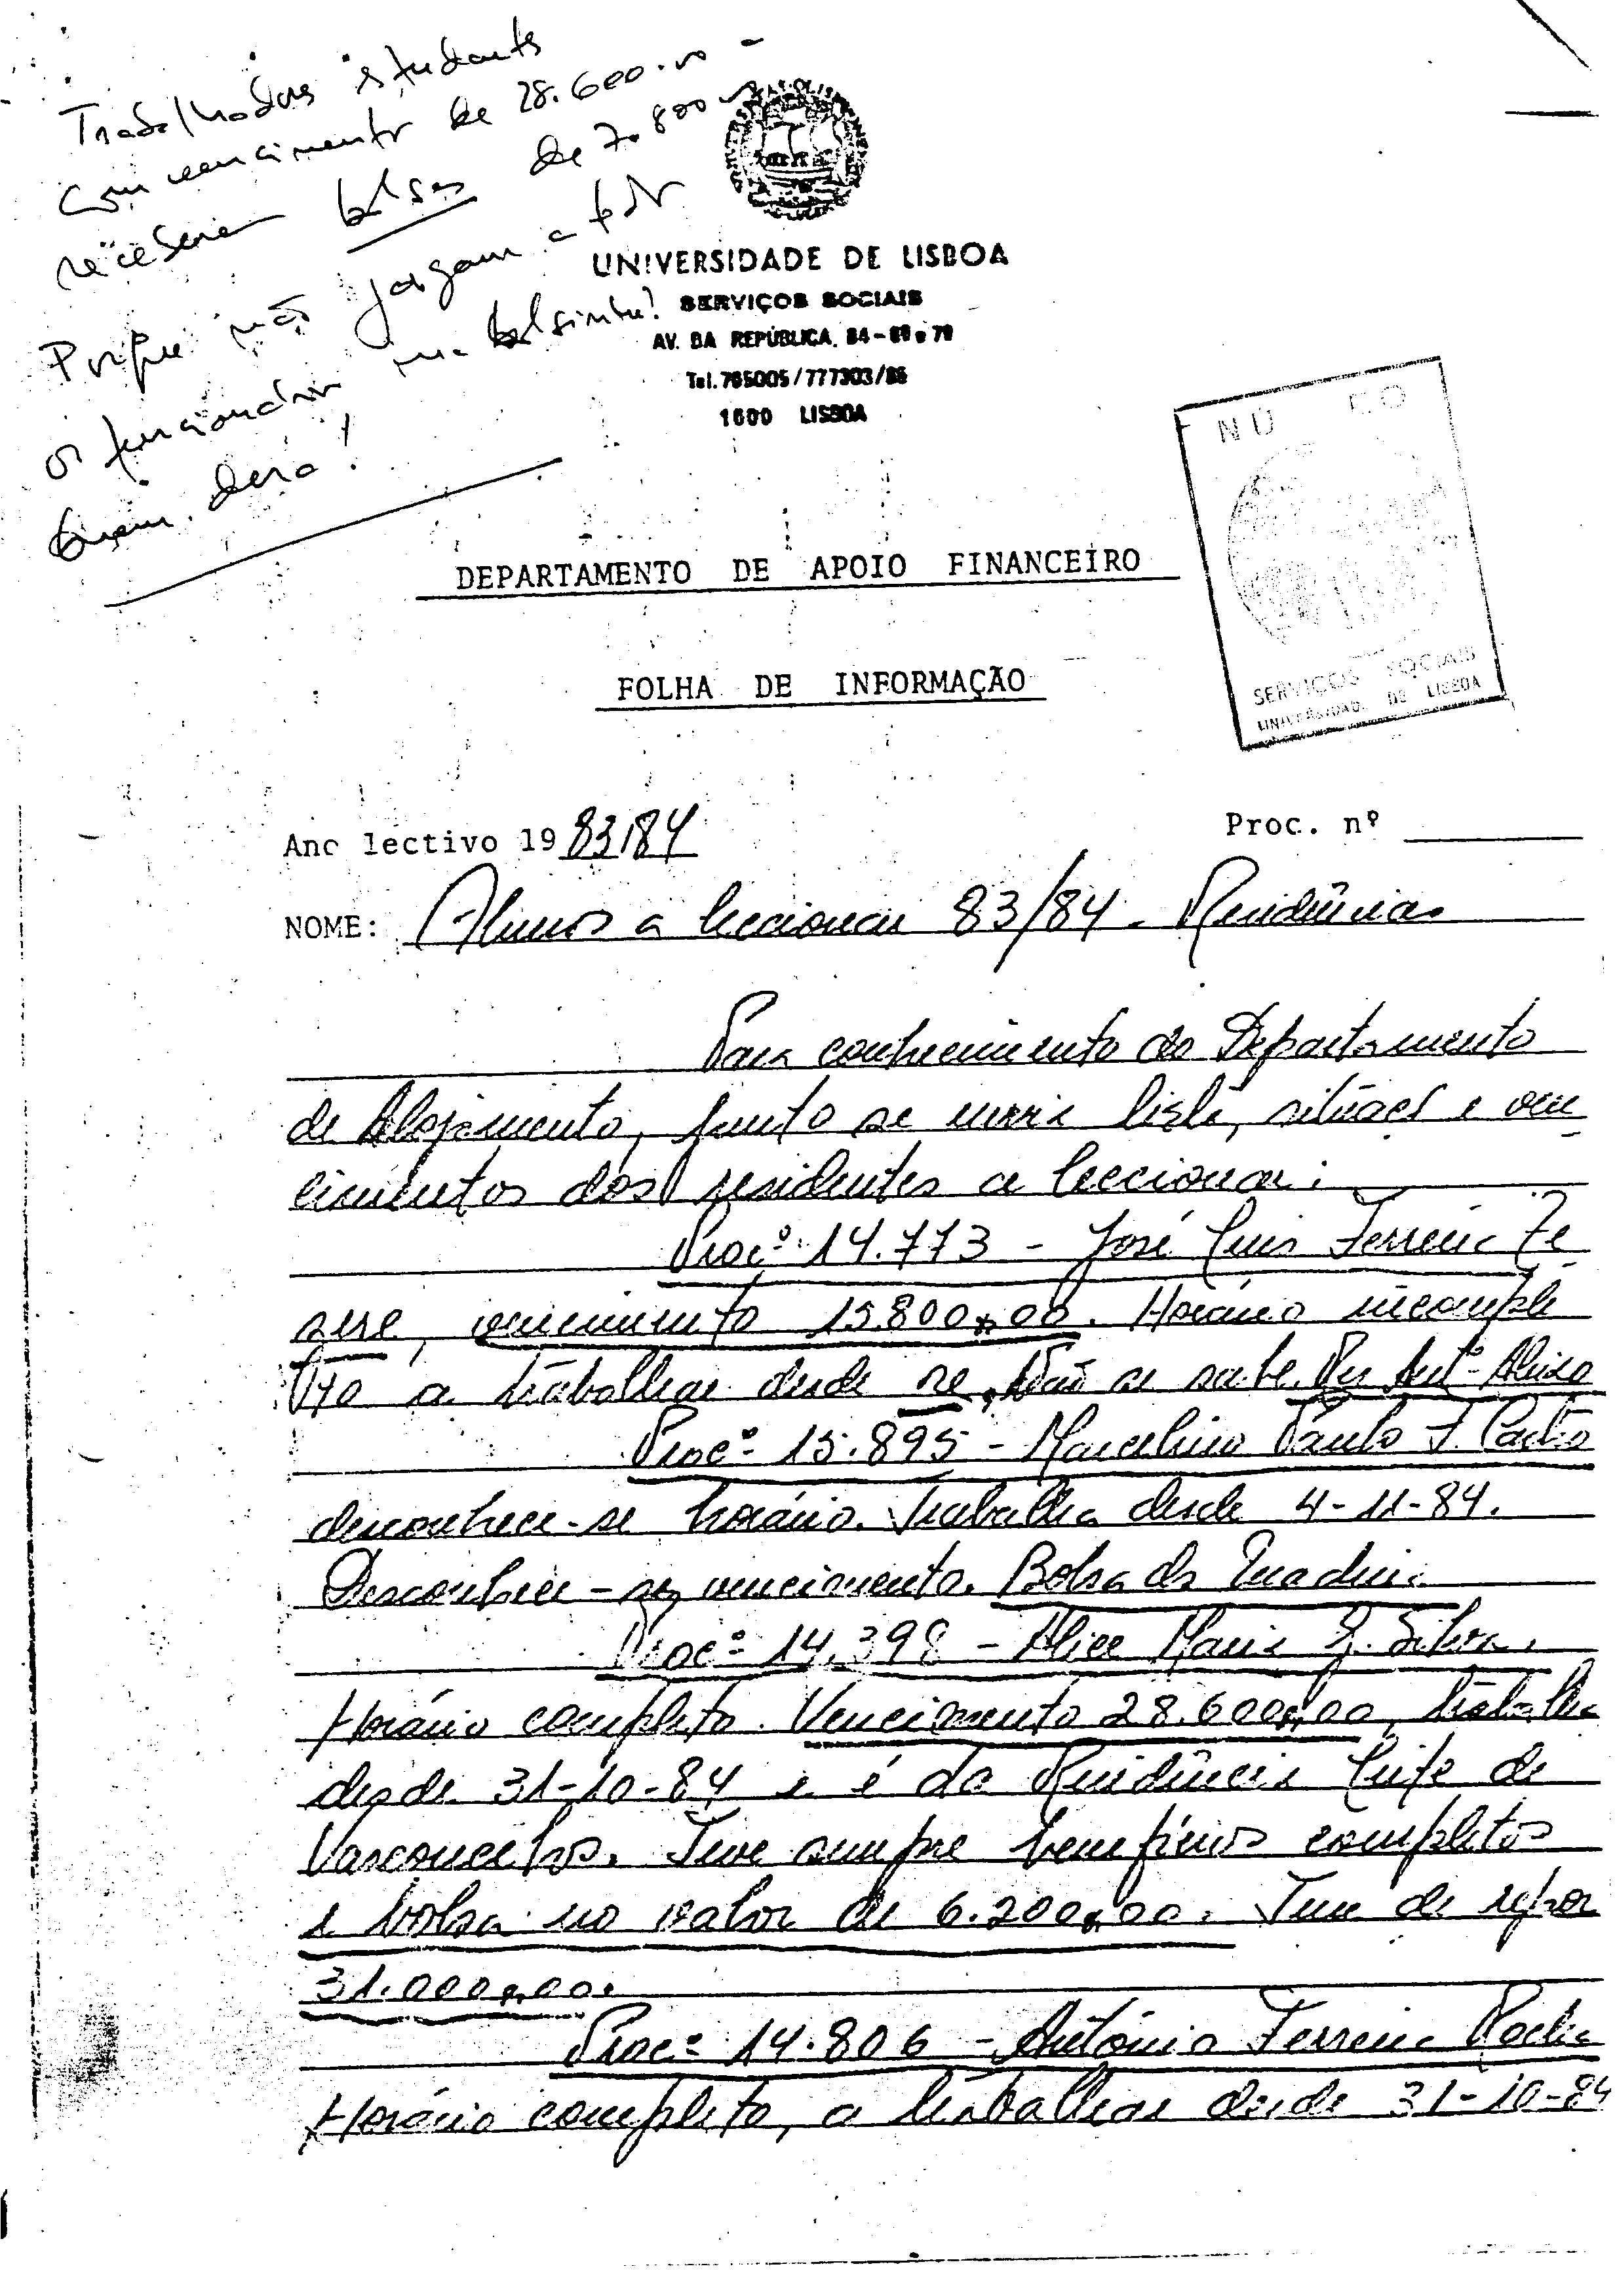 Trabalhadores estudants
Com vencimento de 28.600.00 -
receberem bolsas de 7.800
Porque não jogam a
os funcionários na bolsinha?
Quem dera!
UNIVERSIDADE DE LISBOA
SERVIÇOS SOCIAIS
AV. DA REPÚBLICA, 84-
Tel. 765005/777303/86
1600 LISBOA
SERVIÇOS SOCIAIS
UNIVERSIDADE DE LISBOA
DEPARTAMENTO DE APOIO FINANCEIRO
FOLHA DE INFORMAÇÃO
Ano lectivo 19 83/84
Proc. nº
NOME: Alunos a leccionar 83/84. Residências
Para conhecimento do Departamento
de Alojamento, junto se envia lista, situações e ven
cimentos dos residentes a leccionar:
Procº 14.773 - José Luis Ferreira
vencimento 15.800$00. Horário incomple
to a trabalhar desde Não se sabe.
Procº 15.895 - Marcelino Paulo J. Castro
desconhece-se horário. Trabalha desde 4-11-84.
Desconhece-se vencimento. Bolsa da Madeira
Procº 14.398 - Alice Maria Silva.
Horário completo. Vencimento 28.600$00, trabalha
desde 31-10-84 e é da Residência de
Vasconcelos. Teve sempre benefícios completos
e bolsa no valor de 6.200$00. Tem de repor
31.000$00.
Procº 14.806 - António Ferreira Rocha
Horário completo, a trabalhar desde 31-10-84